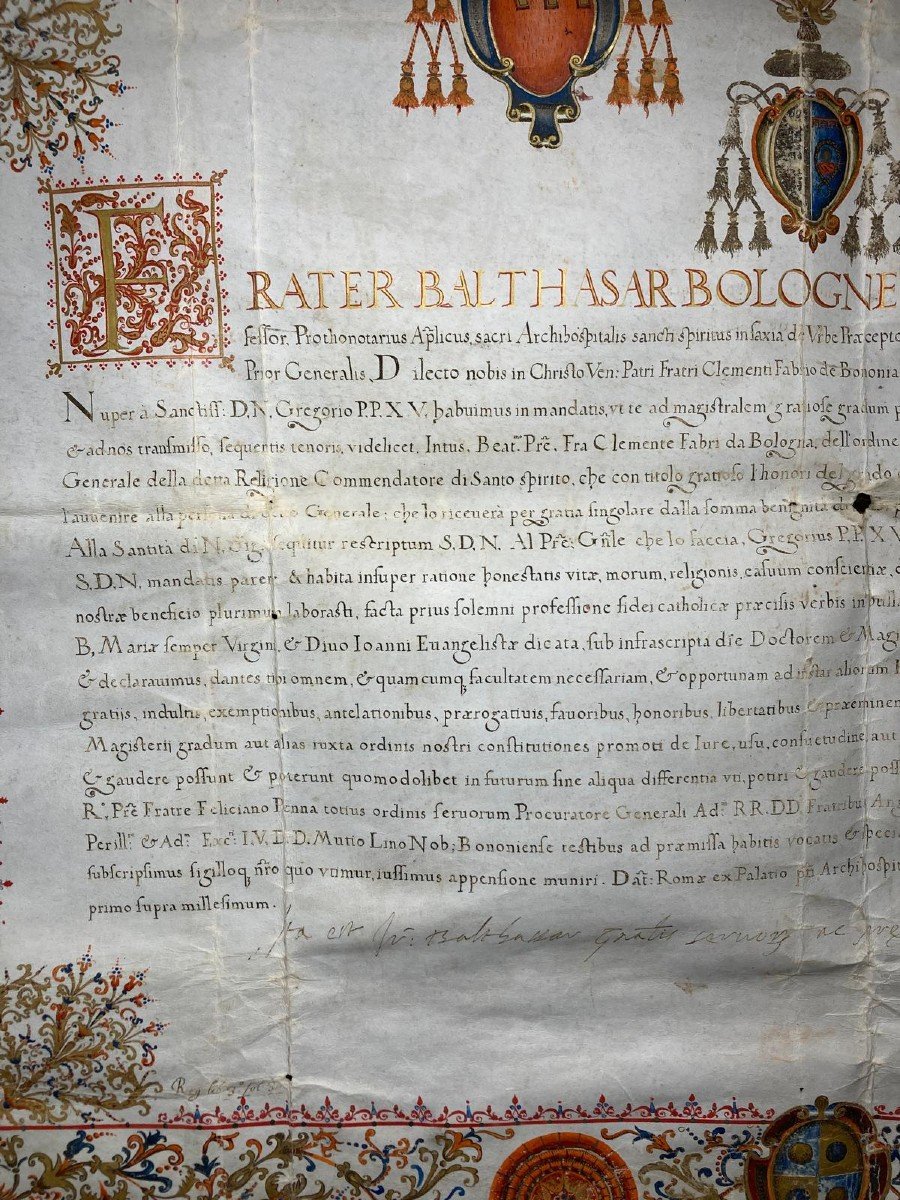 FRATER BALTHASAR BOLOGNE
ſeſſor. Prothonotarius Aplicus, sacri Archihospitalis sancti spiritus in saxia de Vrbe Præcepto
Prior Generalis, Dilecto nobis in Christo Ven: Patri Fratri Clementi Fabrio de Bononia
Nuper à Sanctiſſ. D.N. Gregorio P.P. XV. habuimus in mandatis, vt te ad magistralem gratiose gradum p
& ad nos transmisso, sequentis tenoris, videlicet, Intus, Beat. Pr̃e. Fra Clemente Fabri da Bologna, dell'ordine
Generale della detta Religione Commendatore di Santo spirito, che con titolo gratioso l'honori del grado
l'auuenire alla Generale; che lo riceuerà per gratia singolare dalla somma benignità
Alla Santità di N. Sig. sequitur rescriptum S.D.N. Al Pr̃e: Gñle che lo faccia, Gregorius P.P. XV
S.D.N. mandatis parere & habita insuper ratione honestatis vitæ, morum, religionis, casuum conscientiæ,
nostræ beneficio plurimum laborasti, facta prius solemni professione fidei catholicæ præcisis verbis in bulla
B, Mariæ semper Virgini, & Diuo Ioanni Euangelistæ dicata, sub infrascripta die Doctorem & Magi
& declarauimus, dantes tibi omnem, & quamcumq facultatem necessariam, & opportunam ad instar aliorum
gratijs, indultis, exemptionibus, antelationibus, prærogatiuis, fauoribus, honoribus, libertatibus & præeminen
Magisterij gradum aut alias iuxta ordinis nostri constitutiones promoti de Iure, usu, consuetudine, aut
& gaudere possunt & poterunt quomodolibet in futurum sine aliqua differentia vti, potiri & gaudere poss
R. Pr̃e Fratre Feliciano Penna totius ordinis seruorum Procuratore Generali Ad. RR. DD. Fratribus
Perill. & Ad. Exc. I.V.D.D. Mutio Lino Nob; Bononiense testibus ad præmissa habitis vocatis & speci
subscripsimus sigilloq nr̃o quo vtimur, iussimus appensione muniri. Dat: Romæ ex Palatio Archihospit
primo supra millesimum.
Ita est fr: Balthassar